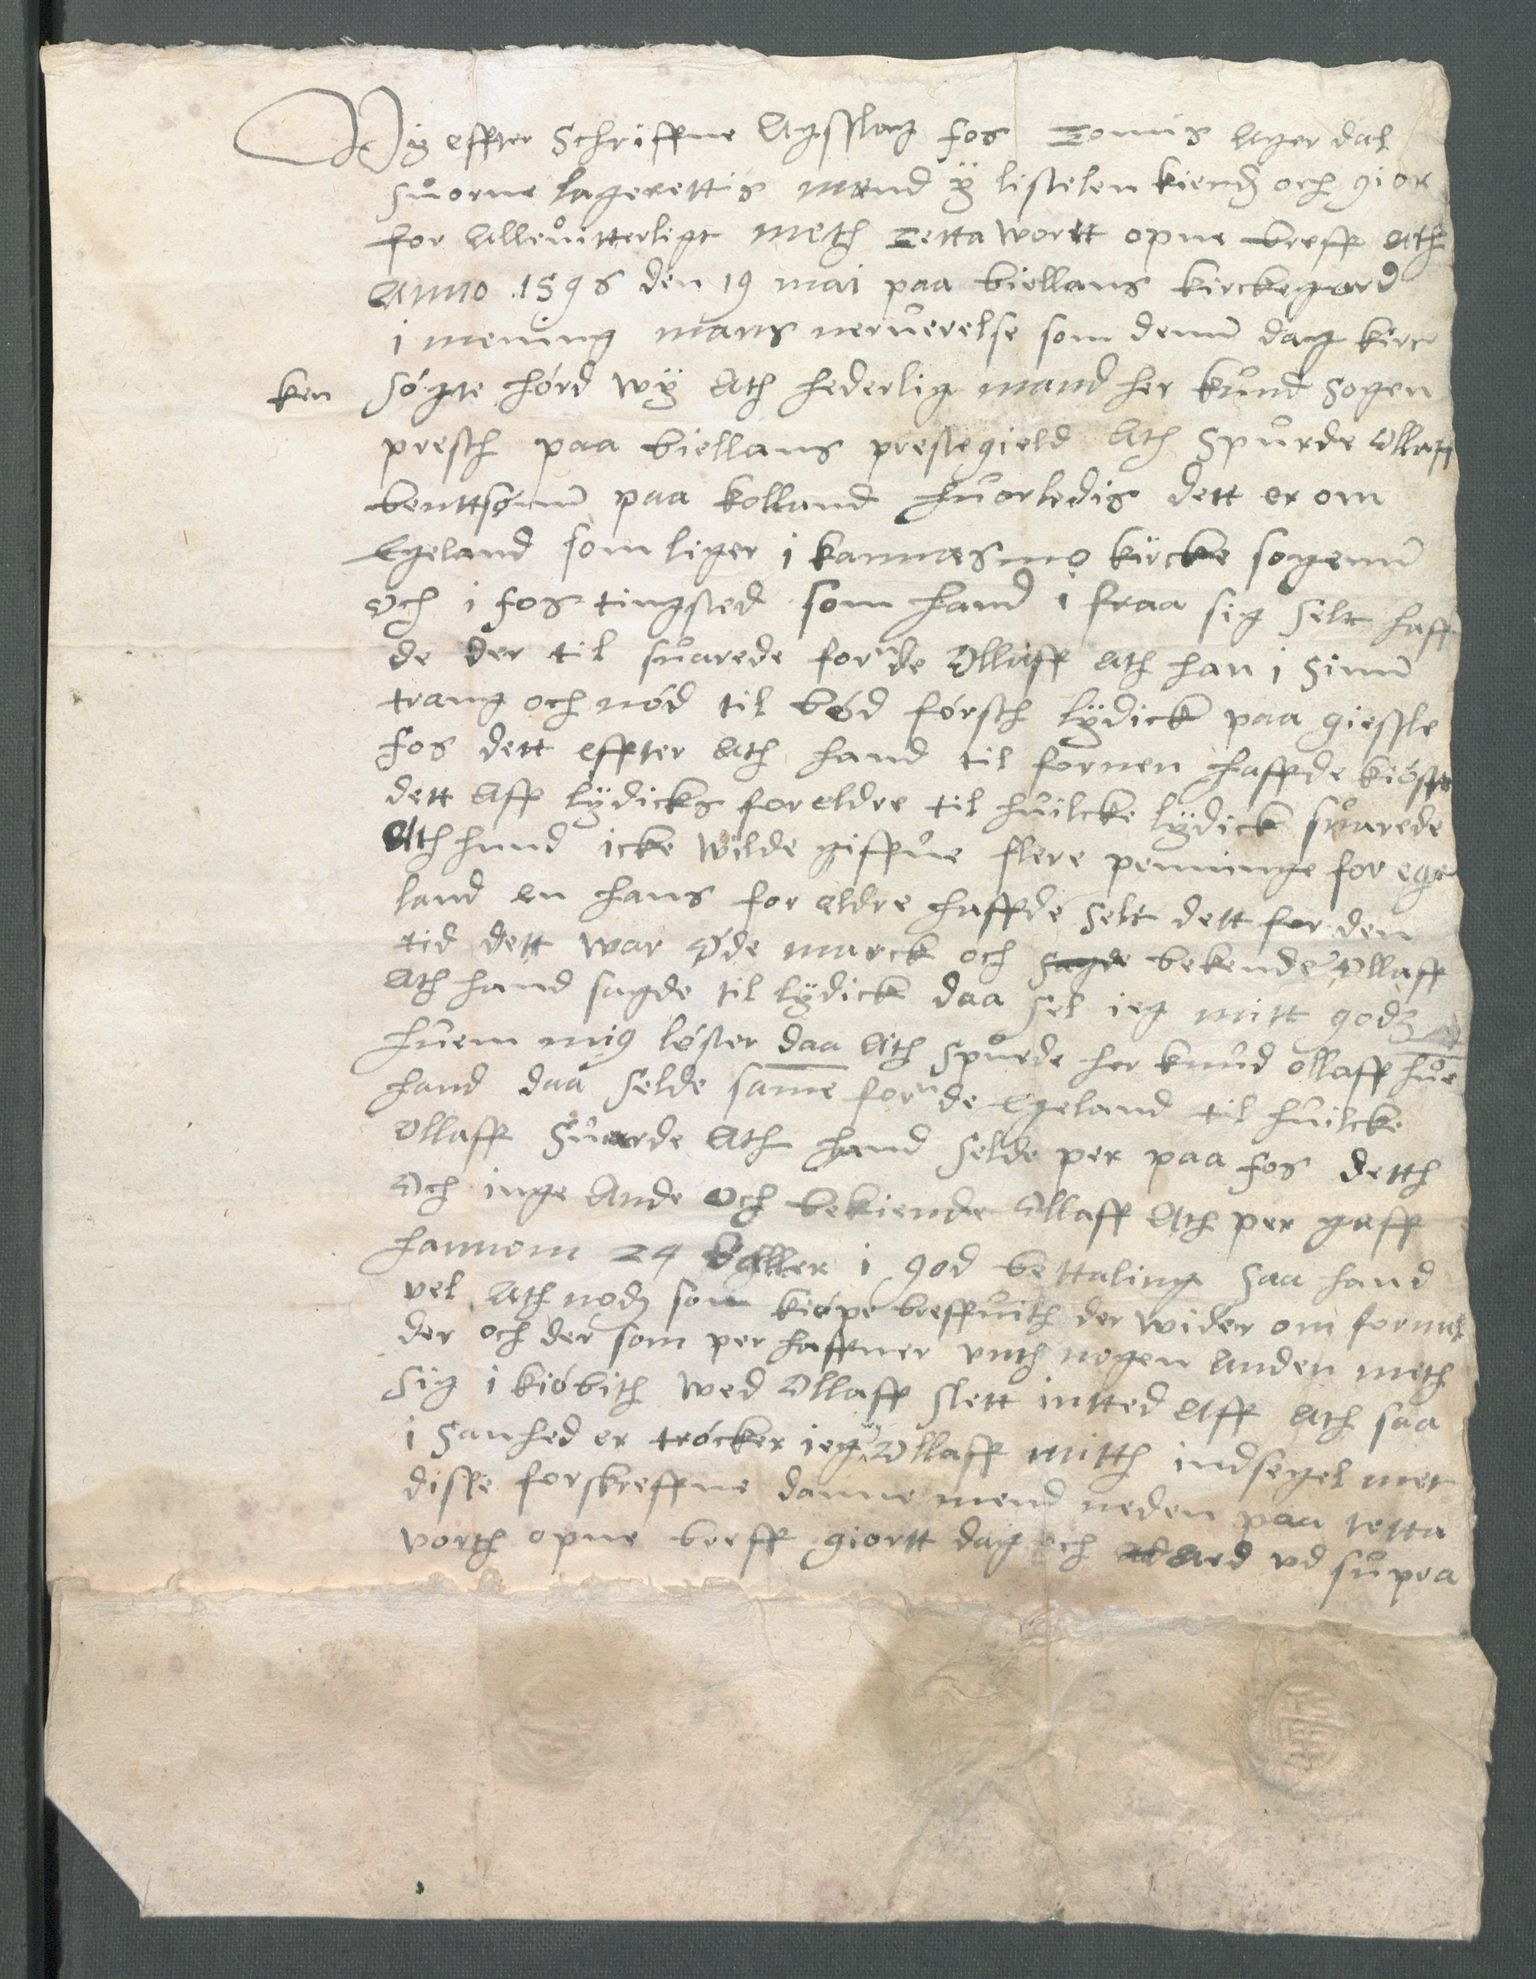 Wy effter Schriffne Agsslag fos Tomis Agerdal
suorne lagerettis mend ÿ listelen kiend och gior
for Alleuitterligt meth tetta wortt opne breff Ath
Anno 1596 den 19 mai paa biellans kirckegard
i mening mans neruerelse som denn dag kirc
ken søgte hørd wÿ Ath hederlig mand her knud sogen
presth paa biellans prestegield Ath spurde Ollaff
benttsønn paa kolland huorledis dett er om
Egeland som liger i kannesmo kircke sogenn
Och i fos tingsted som hand i fraa sig selt haff
de der til suarede forde Ollaff Ath han i sinn
trang och nød til bød førsth lÿdick paa giessle
fos dett effter Ath hand til fornen haffde kiøffte
dett Aff lÿdicks foreldre til huilcke lÿdick suarede
Ath hand icke wilde giffue flere penninge for ege
land en hans for eldre haffde selt dett for den
tid dett war øde marck och sagde bekende Ollaff
Ath hand sagde til lÿdick daa sel ieg mitt godz
huem mig løster daa Ath spurde her knud ollaff hue
hand daa selde same forde Egeland til huilcke
Ollaff suarde Ath hand selde per paa fos detth
Och inge Ande Och bekiende Ollaff Ath per gaff
hannom 24 daller i god bettaling saa hand
vel Ath nodz som kiøpe breffuith der wider om formel
der och der som per haffuer vnth nogen anden meth
sig i kiøbith wed Ollaff slett intted Aff Ath saa
i sanhed er trøcker ieg Ollaff mitth indsegel met
disse forskreffne danne mend neden paa tetta
vorth opne breff giortt dag och Aed vd supra